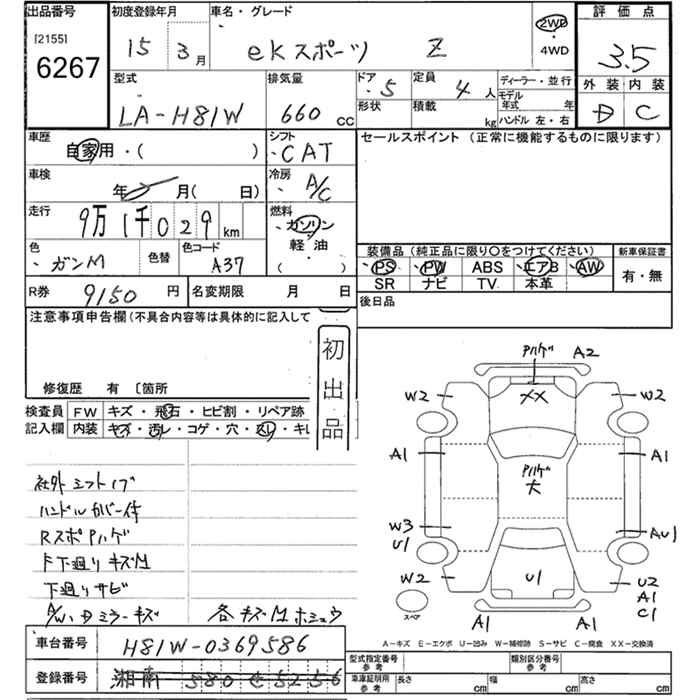 出品番号
[2155]
6267
初度登録年月
15 3月
車名・グレード
ekスポーツ Z
2WD
・4WD
評価点
3.5
外装 内装
D C
型式
LA-H81W
排気量
660 cc
ドア 5
形状
定員 4人
積載 kg
ディーラー・並行
モデル年式 年
ハンドル 左・右
車歴
自家用・( )
シフト
CAT
セールスポイント (正常に機能するものに限ります)
車検
年 月( 日)
冷房
A/C
走行
9万1千029km
燃料
・ガソリン
軽油
・( )
色
・ガンM
色替
色コード
A37
装備品(純正品に限り○をつけてください)
新車保証書
PS PW ABS エアB AW
SR ナビ TV 本革
有・無
R券
9150 円
名変期限 月 日
後日品
注意事項申告欄(不具合内容等は具体的に記入して
初出品
修復歴 有 〔箇所
検査員記入欄
FW キズ・飛石・ヒビ割・リペア跡
内装 キズ・汚レ・コゲ・穴・スレ・キレ
社外シフトノブ
ハンドルカバー付
RスポPハゲ
F下廻りキズM
下廻りサビ
A/W、Dミラーキズ
各キズMホシュウ
Pハゲ A2
XX
W2 W2
A1 A1
Pハゲ
大
W3
U1
AU1
W2
U1
U2
A1
C1
スペア
A1 A1
A-キズ E-エクボ U-凹み W-補修跡 S-サビ C-腐食 XX-交換済
車台番号
H81W-0369586
登録番号
湘南 580 そ 5256
型式指定番号 参考
類別区分番号 参考
車庫証明用 参考
長さ cm
幅 cm
高さ cm